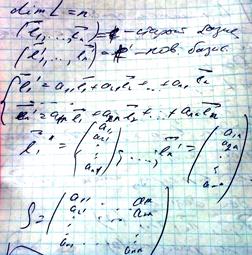 dim L = n
(l⃗₁, ..., l⃗ₙ) = f - старый базис
(l⃗₁', ..., l⃗ₙ') = f' - нов. базис.
l⃗₁' = a₁₁ l⃗₁ + a₂₁ l⃗₂ + ... + aₙ₁ l⃗ₙ
l⃗ₙ' = a₁ₙ l⃗₁ + a₂ₙ l⃗₂ + ... + aₙₙ l⃗ₙ
l⃗₁' = (a₁₁ a₂₁ ⋮ aₙ₁); ..., l⃗ₙ' = (a₁ₙ a₂ₙ ⋮ aₙₙ)
S = (a₁₁ ... a₁ₙ
a₂₁ ... a₂ₙ
⋮ ⋮
aₙ₁ ... aₙₙ)